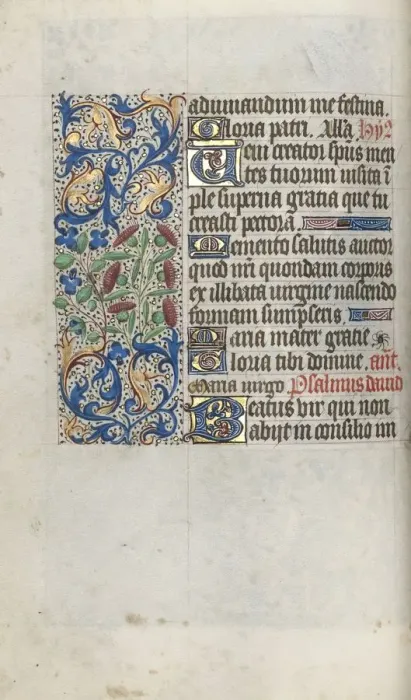 adiuuandum me festina
Gloria patri. Alla Hy᷒
Veni creator sp̄us men
tes tuorum uisita ī
ple superna gratia que tu
creasti pectora
Memento salutis auctor
quod nr̄i quondam corporis
ex illibata uirgine nascendo
formam sumpseris
Maria mater gratie
Gloria tibi domine. ant.
Maria uirgo Psalmus dauid
Beatus vir qui non
abijt in consilio im